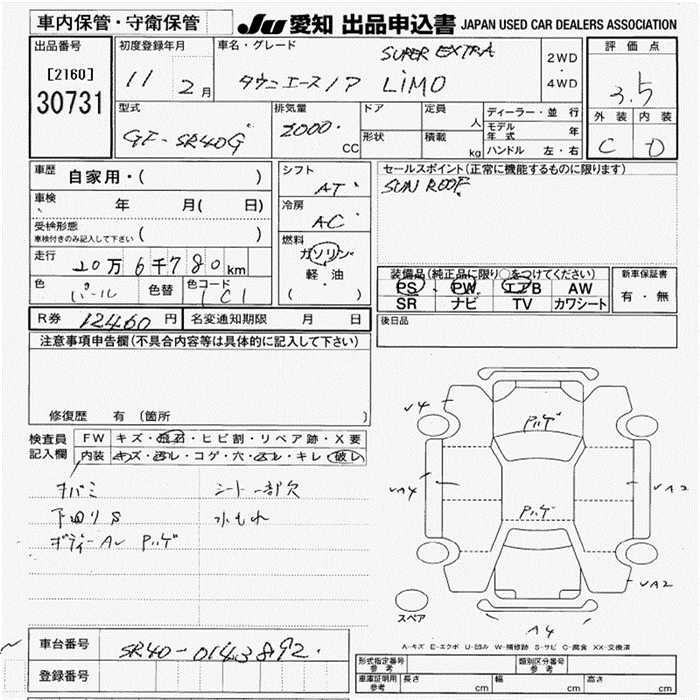 車内保管・守衛保管
JU 愛知 出品申込書 JAPAN USED CAR DEALERS ASSOCIATION
出品番号
[2160]
30731
初度登録年月
11 2月
車名・グレード
SUPER EXTRA
タウンエースノア LiMO
2WD
・
4WD
評価点
3.5
外装 内装
C D
型式
GF-SR40G
排気量
2000 CC
ドア
形状
定員
人
積載
kg
ディーラー・並行
モデル年式 年
ハンドル 左・右
車歴
自家用・( )
車検
年 月( 日)
受検形態
車検付きのみ記入して下さい ( )
走行
20万6千780km
色
パール
色替
色コード
1C1
シフト
AT
冷房
AC
燃料
ガソリン
・
軽・油
( )
セールスポイント(正常に機能するものに限ります)
SUN ROOF
装備品(純正品に限り○をつけてください)
PS PW エアB AW
SR ナビ TV カワシート
新車保証書
有・無
後日品
R券 12460円
名変通知期限 月 日
注意事項申告欄(不具合内容等は具体的に記入して下さい)
修復歴 有(箇所 )
検査員記入欄
FW キズ・飛石・ヒビ割・リペア跡・X要
内装 キズ・汚レ・コゲ・穴・凸レ・キレ・破レ
キバミ シート一部欠
下回りS 水もれ
ボディーAU Pハゲ
√4
Pハゲ
√A4
√A2
Pハゲ
√A2
A4
スペア
A-キズ E-エクボ U-凹ル W-補修跡 S-サビ C-腐食 XX-交換済
車台番号
SR40-0143892
登録番号
形式指定番号 参考
類別区分番号 参考
車庫証明用 参考
長さ cm
幅 cm
高さ cm